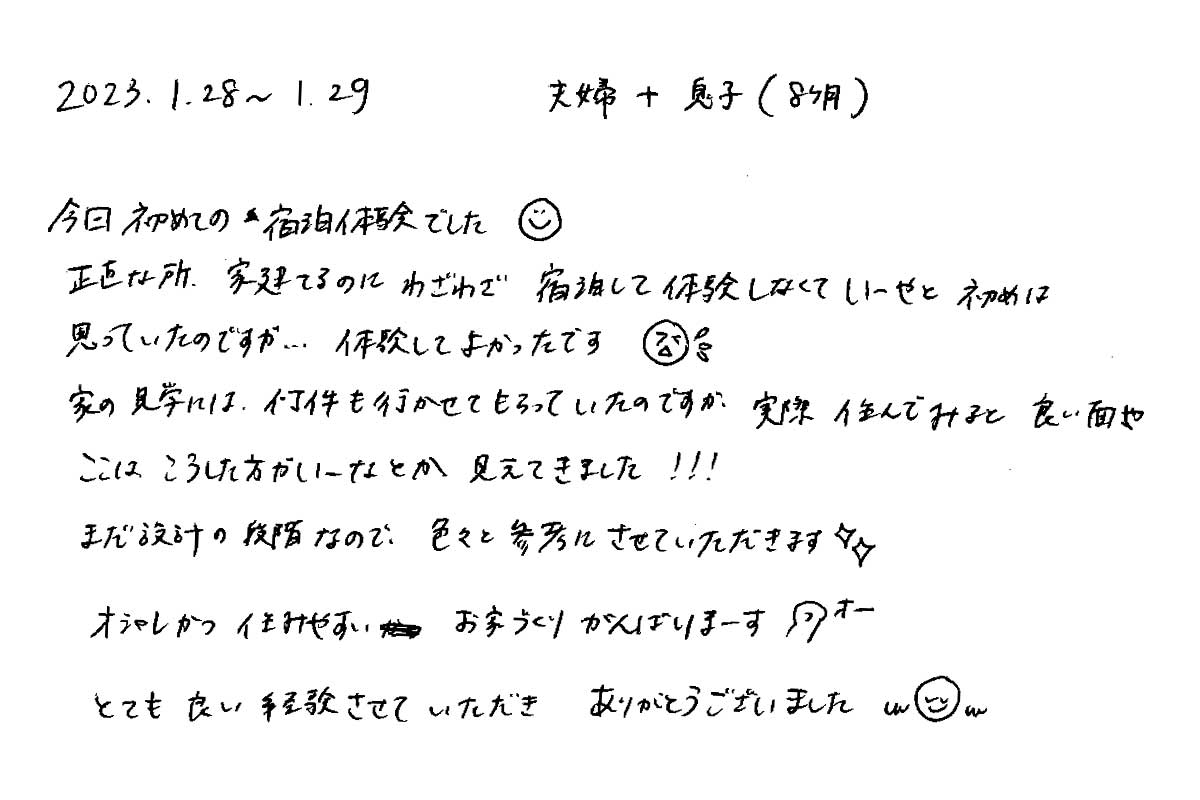 2023.1.28〜1.29 夫婦+息子(8ヶ月)
今回初めての宿泊体験でした
正直な所、家建てるのにわざわざ宿泊して体験しなくていーやと初めは
思っていたのですが… 体験してよかったです
家の見学には、何件も行かせてもらっていたのですが、実際住んでみると良い面や
ここはこうした方がいーなとか見えてきました!!!
まだ設計の段階なので、色々と参考にさせていただきます
オシャレかつ住みやすいお家づくりがんばりまーす オー
とても良い経験させていただきありがとうございました